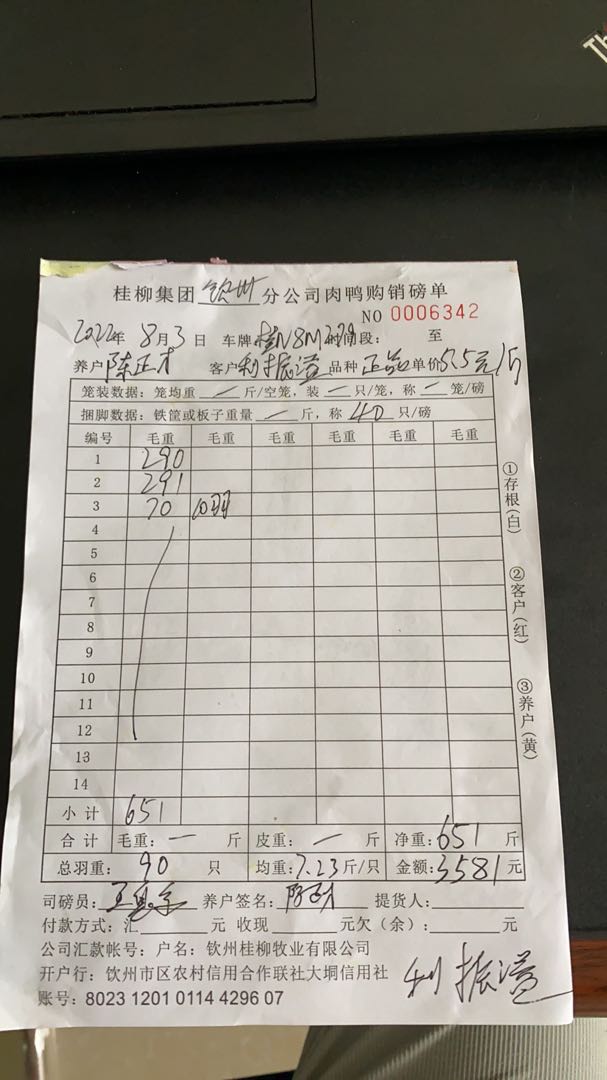 Th
桂柳集团 钦州 分公司肉鸭购销磅单
NO 0006342
2022年 8月3日 车牌 桂N8M279 时间段: 至
养户 陈正才 客户 利振溢 品种 正品 单价 5.5元/斤
笼装数据: 笼均重 一 斤/空笼, 装 一 只/笼, 称 一 笼/磅
捆脚数据: 铁筐或板子重量 一 斤, 称 40 只/磅
编号 毛重 毛重 毛重 毛重 毛重 毛重
1 290
2 291
3 70 10羽
4
5
6
7
8
9
10
11
12
13
14
小计 651
合计 毛重: 一 斤 皮重: 一 斤 净重: 651 斤
总羽重: 90 只 均重: 7.23 斤/只 金额: 3581 元
司磅员: 养户签名: 提货人:
付款方式: 汇 元 收现 元欠(余): 元
公司汇款帐号: 户名: 钦州桂柳牧业有限公司
开户行: 钦州市区农村信用合作联社大垌信用社
账号: 8023 1201 0114 4296 07
利振溢
①存根(白)
②客户(红)
③养户(黄)